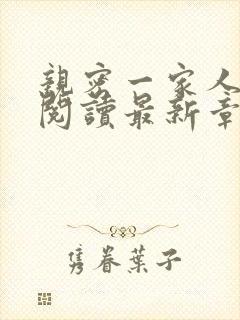 親密一家人
閱讀最新章
隽眷葉子